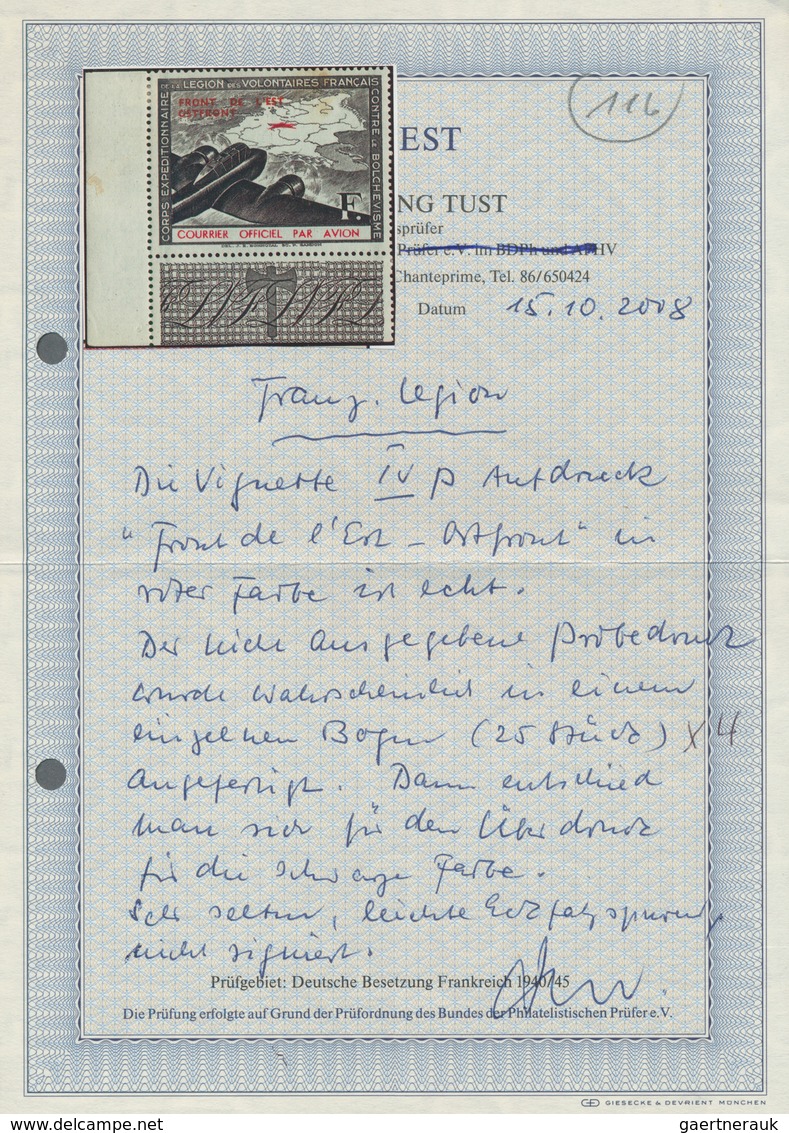 DE LA LEGION DES VOLONTAIRES FRANÇAIS
CORPS EXPEDITIONNAIRE
CONTRE LE BOLCHEVISME
FRONT DE L'EST
OSTFRONT
F.
COURRIER OFFICIEL PAR AVION
116
EST
NG TUST
sprüfer
Prüfer e.V. im BDPh und APHV
Chanteprime, Tel. 86/650424
Datum 15.10.2008
Franz. Legion
Die Vignette IV β Aufdruck
"Front de l'Est - Ostfront" in
roter Farbe ist echt.
Der nicht ausgegebene Probedruck
wurde wahrscheinlich in einem
einzelnen Bogen (25 Stück) x 4
angefertigt. Dann entschied
man sich für den Überdruck
für die schwarze Farbe.
Sehr selten, leichte
nicht signiert.
Prüfgebiet: Deutsche Besetzung Frankreich 1940/45
Die Prüfung erfolgte auf Grund der Prüfordnung des Bundes der Philatelistischen Prüfer e.V.
GD GIESECKE & DEVRIENT MÜNCHEN
gaertnerauk